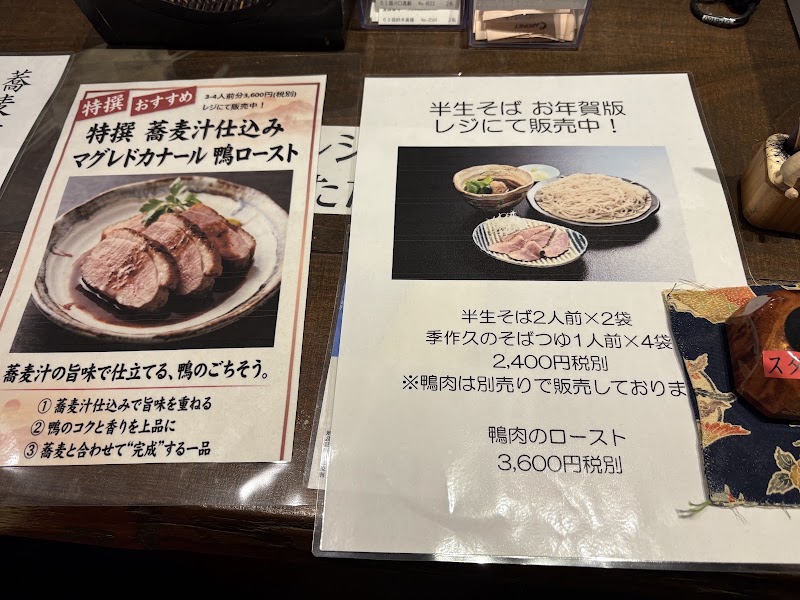 蕎麦
特撰 おすすめ
3-4人前分3,600円(税別)
レジにて販売中!
特撰 蕎麦汁仕込み
マグレドカナール 鴨ロースト
蕎麦汁の旨味で仕立てる、鴨のごちそう。
① 蕎麦汁仕込みで旨味を重ねる
② 鴨のコクと香りを上品に
③ 蕎麦と合わせて"完成"する一品
レジ
半生そば お年賀版
レジにて販売中!
半生そば2人前×2袋
季作久のそばつゆ1人前×4袋
2,400円税別
※鴨肉は別売りで販売しておりま
鴨肉のロースト
3,600円税別
スタ